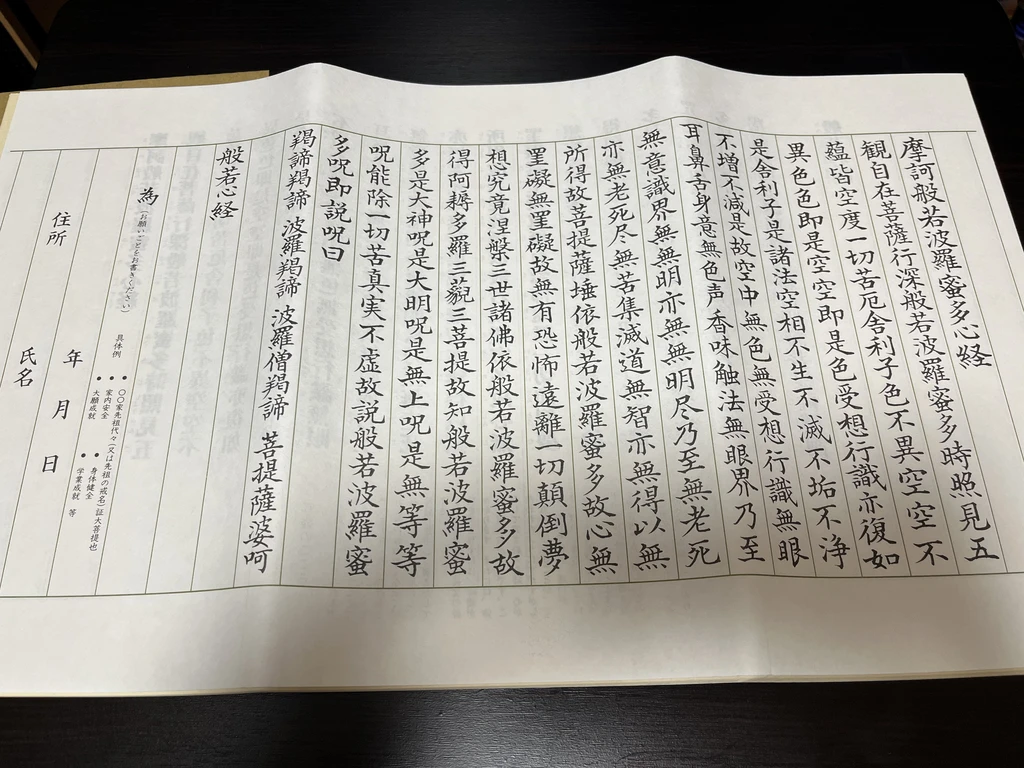 摩訶般若波羅蜜多心経
観自在菩薩行深般若波羅蜜多時照見五
蘊皆空度一切苦厄舎利子色不異空空不
異色色即是空空即是色受想行識亦復如
是舎利子是諸法空相不生不滅不垢不浄
不増不減是故空中無色無受想行識無眼
耳鼻舌身意無色声香味触法無眼界乃至
無意識界無無明亦無無明尽乃至無老死
亦無老死尽無苦集滅道無智亦無得以無
所得故菩提薩埵依般若波羅蜜多故心無
罣礙無罣礙故無有恐怖遠離一切顛倒夢
想究竟涅槃三世諸佛依般若波羅蜜多故
得阿耨多羅三藐三菩提故知般若波羅蜜
多是大神呪是大明呪是無上呪是無等等
呪能除一切苦真実不虚故説般若波羅蜜
多呪即説呪曰
羯諦羯諦 波羅羯諦 波羅僧羯諦 菩提薩婆呵
般若心経
為(お願いごとをお書きください)
具体例
● 〇〇家先祖代々(又は先祖の戒名)証大菩提也
● 家内安全 ● 身体健全
● 大願成就 ● 学業成就 等
年 月 日
住所
氏名